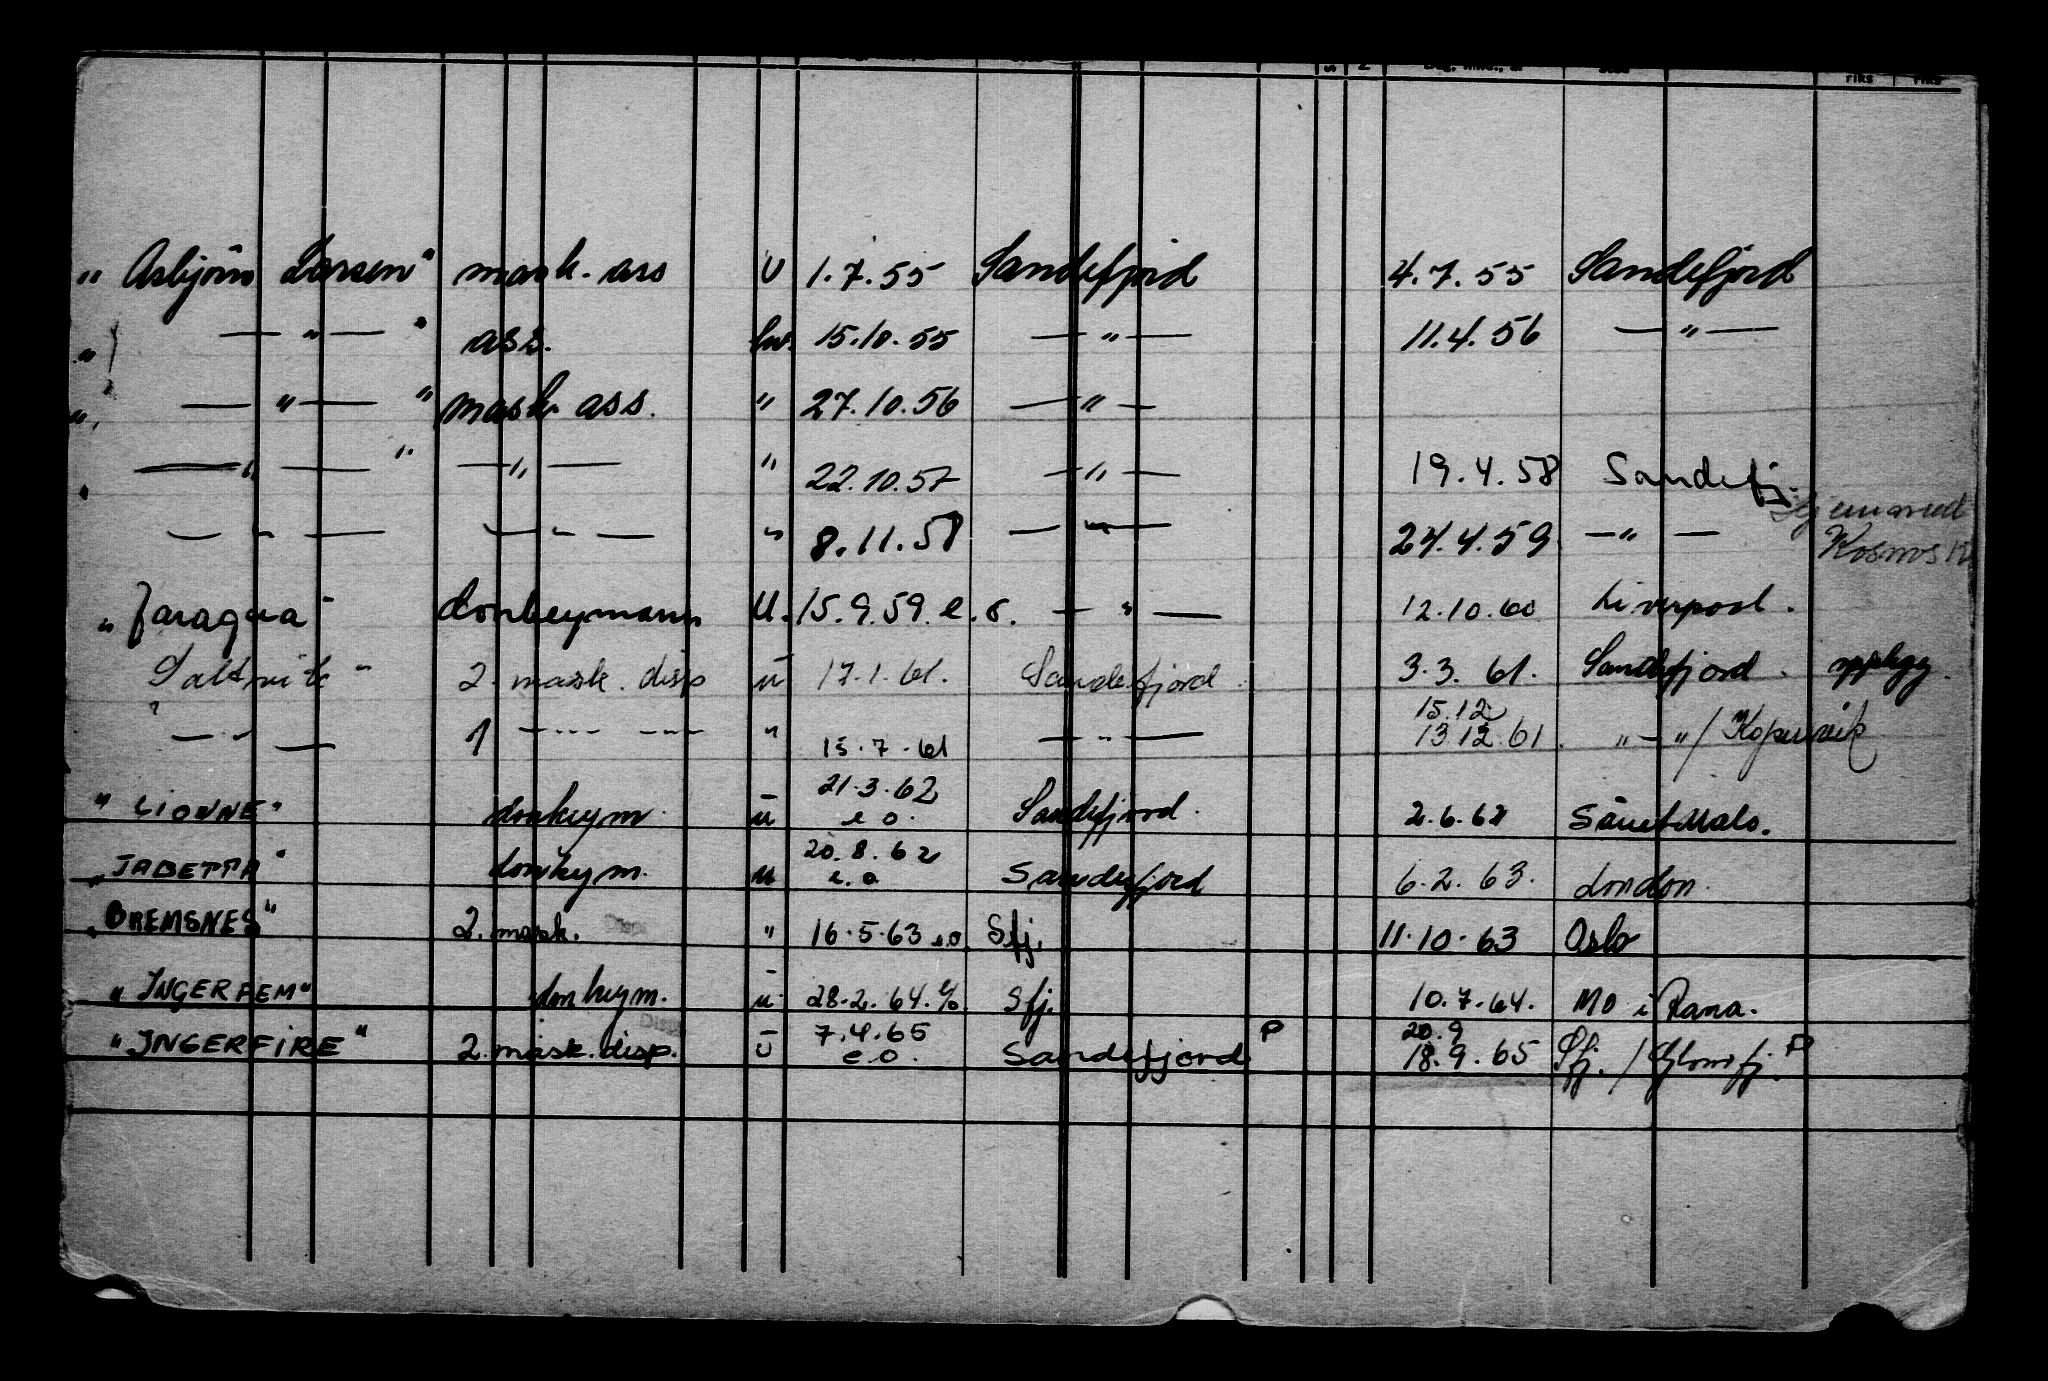 S 2 Fiks Fiks
" Asbjörn Larsen" mask. ass U 1.7.55 Sandefjord 4.7.55 Sandefjord
" — " — " ass. hv. 15.10.55 — " — 11.4.56 — " —
" — " — " mask ass. " 27.10.56 — " —
" — " — " — " — " 22.10.57 — " — 19.4.58 Sandefj.
— " — — " — " 8.11.58 — " — 24.4.59 — " — Hjemsendt Kosmos
" Jaragua" donkeymann U. 15.9.59. e.o. — " — 12.10.60 Liverpool.
" Saltvik" 2. mask. disp u 17.1.61. Sandefjord. 3.3.61. Sandefjord. opplegg.
— " — 1 — " — " 15.7.61 — " — 15.12 13.12.61. " — " / Kopervik
" LIONNE" donkeym. u 21.3.62 e.o. Sandefjord. 2.6.62 Sanct Malo.
" JABETTA" donkeym. u 20.8.62 e.o Sandefjord 6.2.63. London.
" BREMSNES" 2. mask. " 16.5.63 e.o. Sfj. 11.10.63 Oslo
" INGERFEM" donkeym. u. 28.2.64. e/o. Sfj. 10.7.64. Mo i Rana.
" INGERFIRE" 2. mask. disp. U 7.4.65 e.o. Sandefjord P 20.9 18.9.65 Sfj. / Glomfj. P